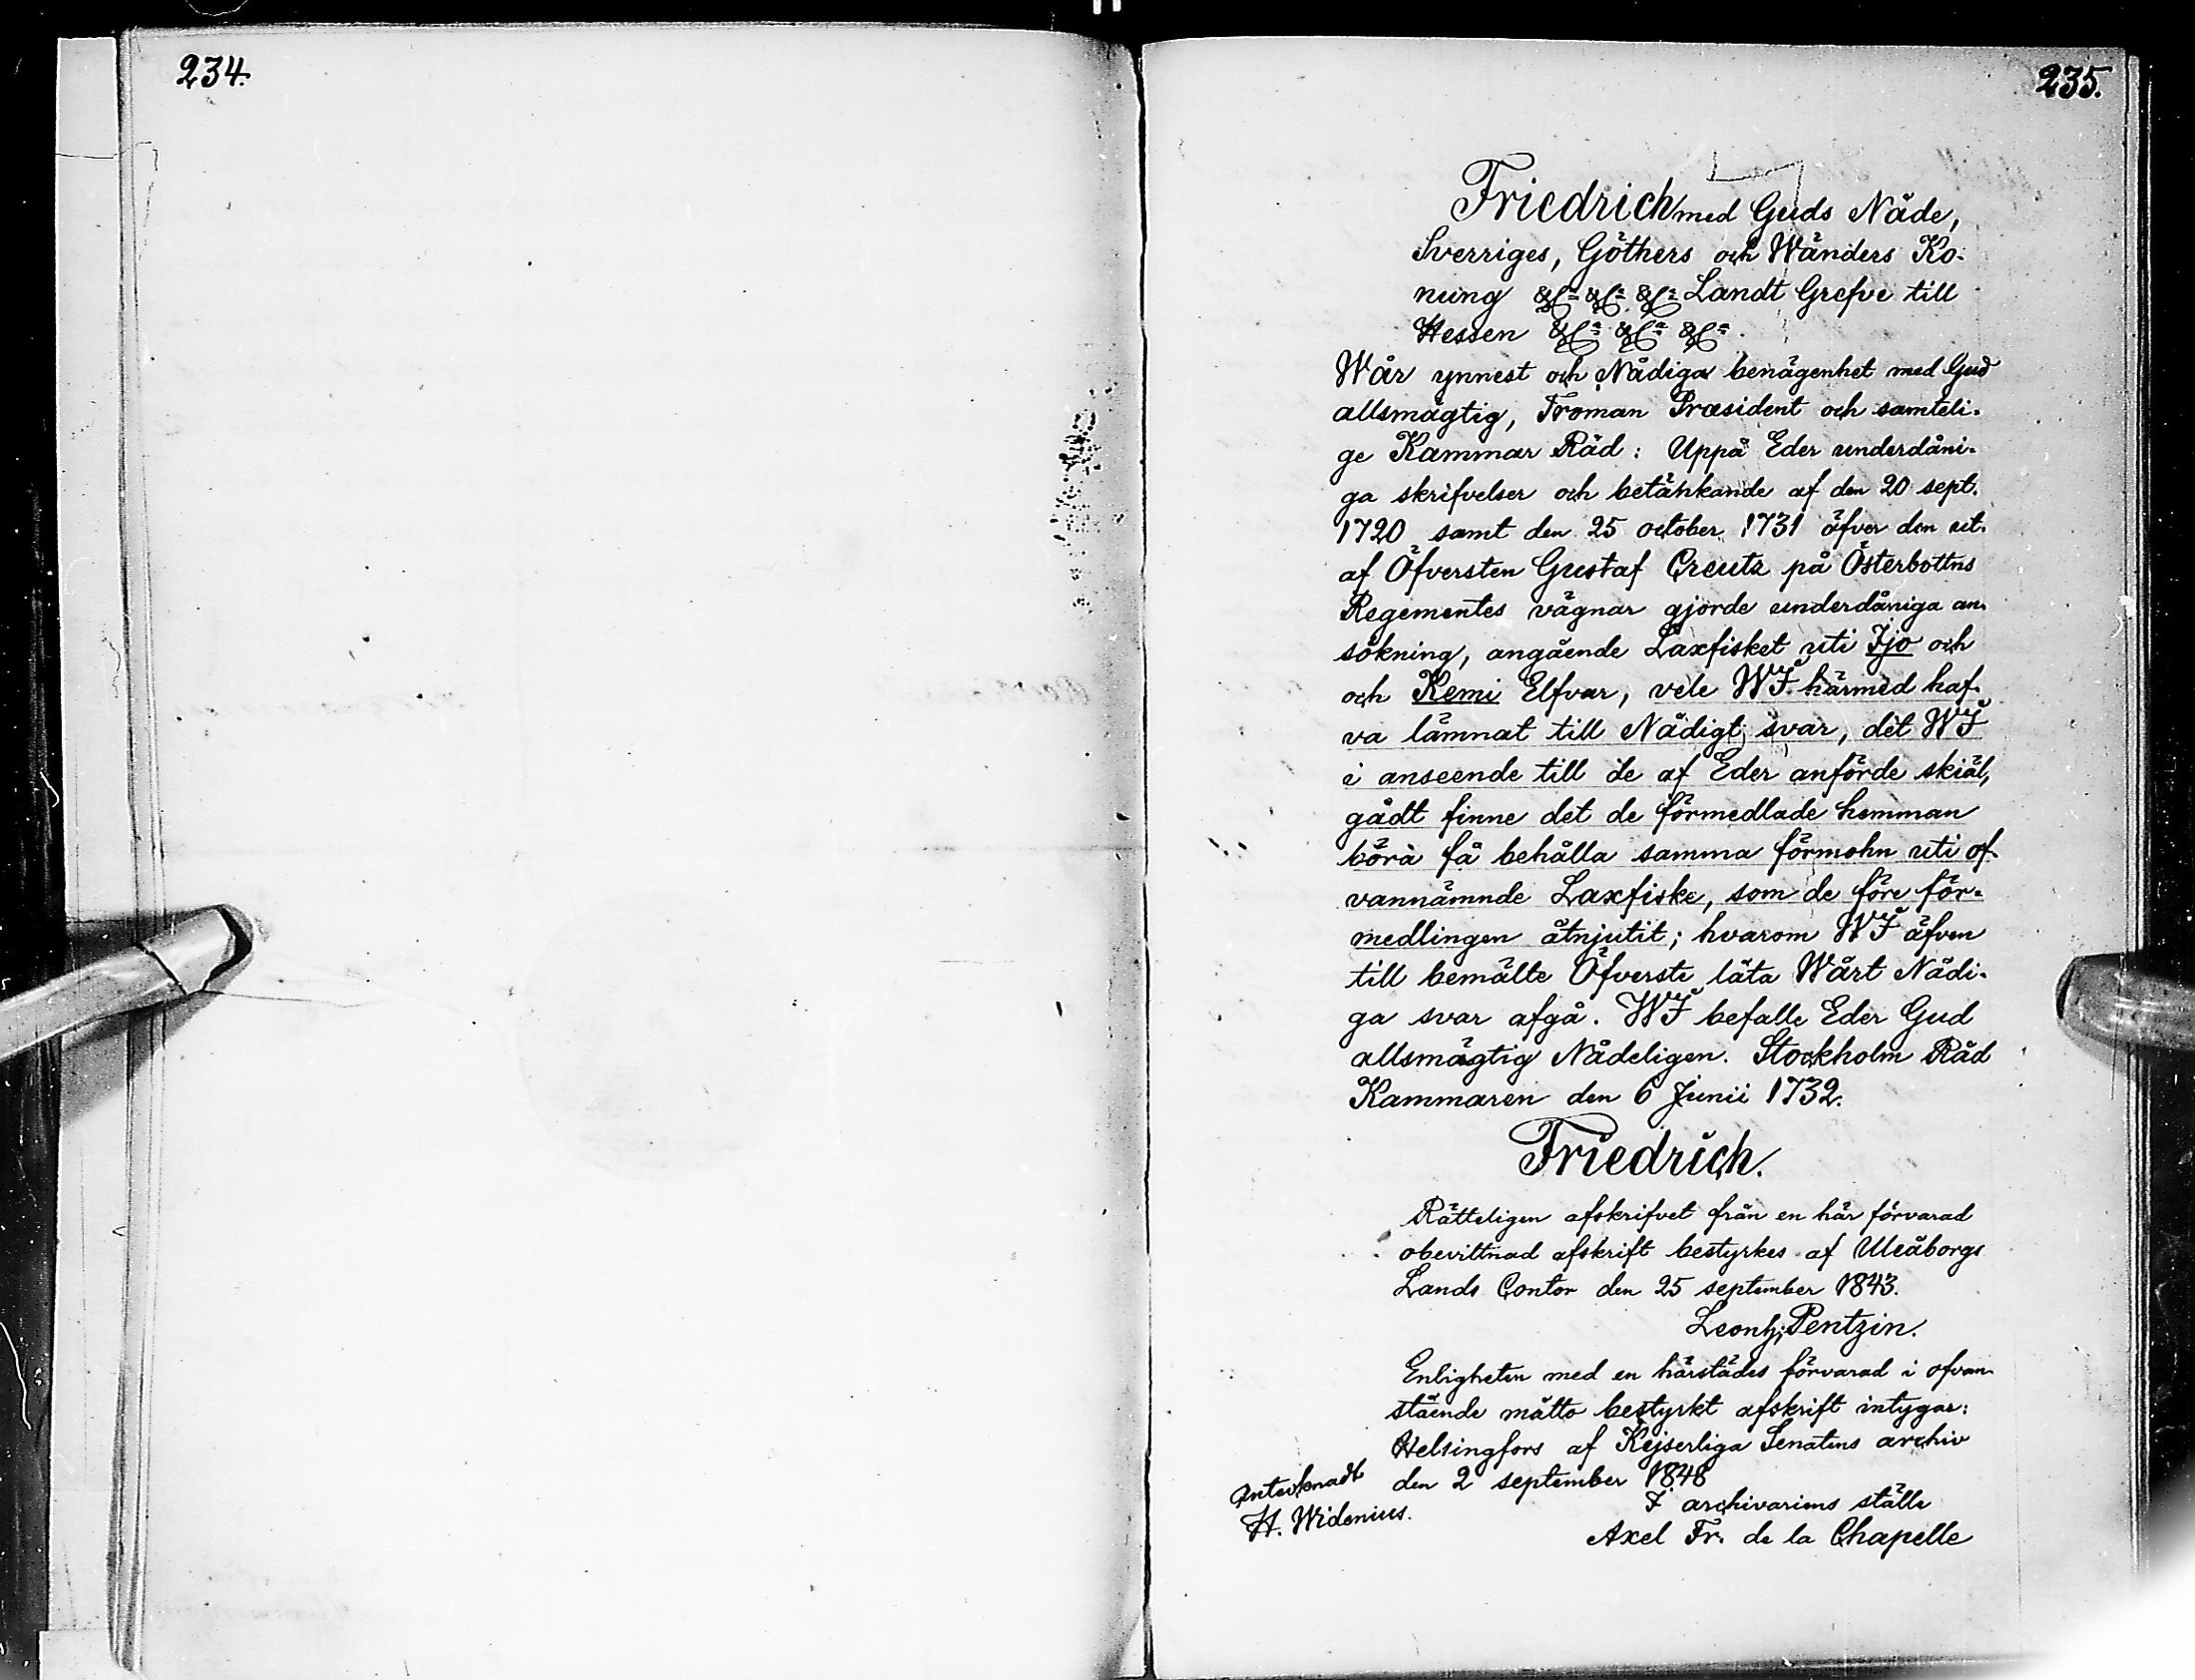 234.
235.
Friedrich med Guds Nåde,
Sverriges, Göthers och Wänders Ko-
nung &c: &c: &c: Landt Grefve till
Hessen &c: &c: &c:
Wår ynnest och Nådiga benägenhet med Gud
allsmägtig, Troman Præsident och samteli-
ge Kammar Råd: Uppå Eder underdåni-
ga skrifvelser och betänkande af den 20 sept.
1720 samt den 25 october 1731 äfver den ut-
af Öfversten Gustaf Creutz på Österbottns
Regementes vägnar gjorde underdåniga an-
sökning, angående Laxfisket uti Ijo och
och Kemi Elfvar, vele WI härmed haf-
va lämnat till Nådigt svar, det WI
i anseende till de af Eder anförde skiäl,
gådt finne det de förmedlade hemman
böra få behålla samma förmohn uti of-
vannämnde Laxfiske, som de före för-
medlingen åtnjutit; hvarom WI äfven
till bemälte Öfverste låta Wårt Nådi-
ga svar afgå. WI befalle Eder Gud
allsmägtig Nådeligen. Stockholm Råd
Kammaren den 6 Junii 1732.
Friedrich.
Rätteligen afskrifvet från en här förvarad
obevittnad afskrift bestyrkes af Uleåborgs
Lands Contor den 25 september 1843.
Leonh: Pentzin.
Enligheten med en härstädes förvarad i ofvan-
stående måtto bestyrkt afskrift intygar:
Helsingfors af Kejserliga Senatens archiv
den 2 september 1848
I archivariens ställe
Axel Fr. de la Chapelle
Antecknadt
H. Widenius.